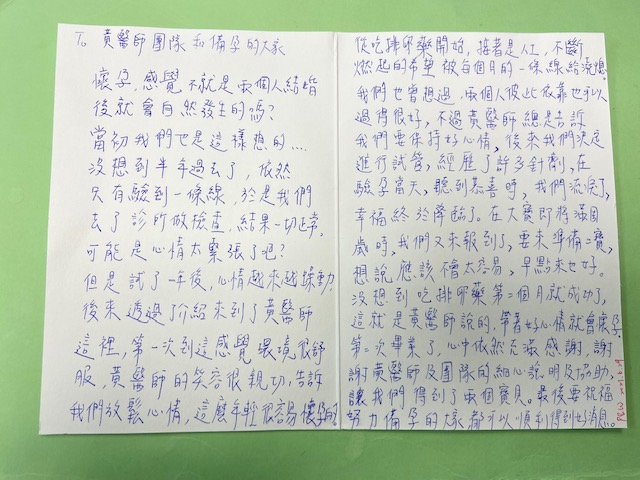 To 黃醫師團隊和備孕的大家
懷孕,感覺不就是兩個人結婚
後就會自然發生的嗎?
當初我們也是這樣想的...
沒想到半年過去了,依然
只有驗到一條線,於是我們
去了診所做檢查,結果一切正常,
可能是心情太緊張了吧?
但是試了一年後,心情越來越操動,
後來透過了介紹來到了黃醫師
這裡,第一次到這感覺環境很舒
服,黃醫師的笑容很親切,告訴
我們放鬆心情,這麼年輕很容易懷孕的
從吃排卵藥開始,接著是人工,不斷
燃起的希望被每個月的一條線給澆熄.
我們也曾想過,兩個人彼此依靠也可以
過得很好,不過黃醫師總是告訴
我們要保持好心情,後來我們決定
進行試管,經歷了許多針劑,在
驗孕當天,聽到恭喜時,我們流淚了,
幸福終於降臨了。在大寶即將滿周
歲時,我們又來報到了,要來準備二寶,
想說應該不會太容易,早點來也好。
沒想到吃排卵藥第二個月就成功了,
這就是黃醫師說的,帶著好心情就會懷孕.
第二次畢業了,心中依然充滿感謝,謝
謝黃醫師及團隊的細心說明及協助,
讓我們得到了兩個寶貝。最後要祝福
努力備孕的大家都可以順利得到好消息。